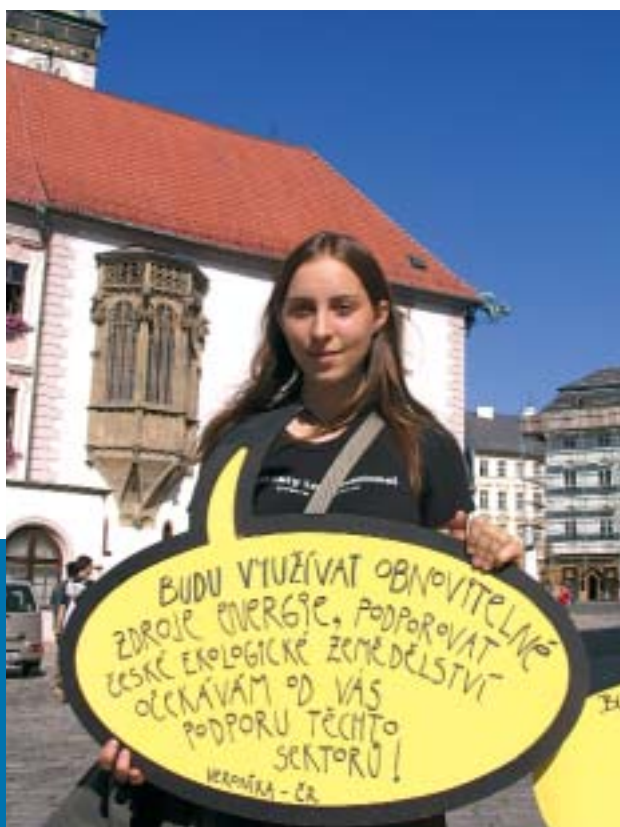 BUDU VYUŽÍVAT OBNOVITELNÉ
ZDROJE ENERGIE, PODPOROVAT
ČESKÉ EKOLOGICKÉ ZEMĚDĚLSTVÍ
OČEKÁVÁM OD VÁS
PODPORU TĚCHTO
SEKTORŮ!
VERONIKA - ČR